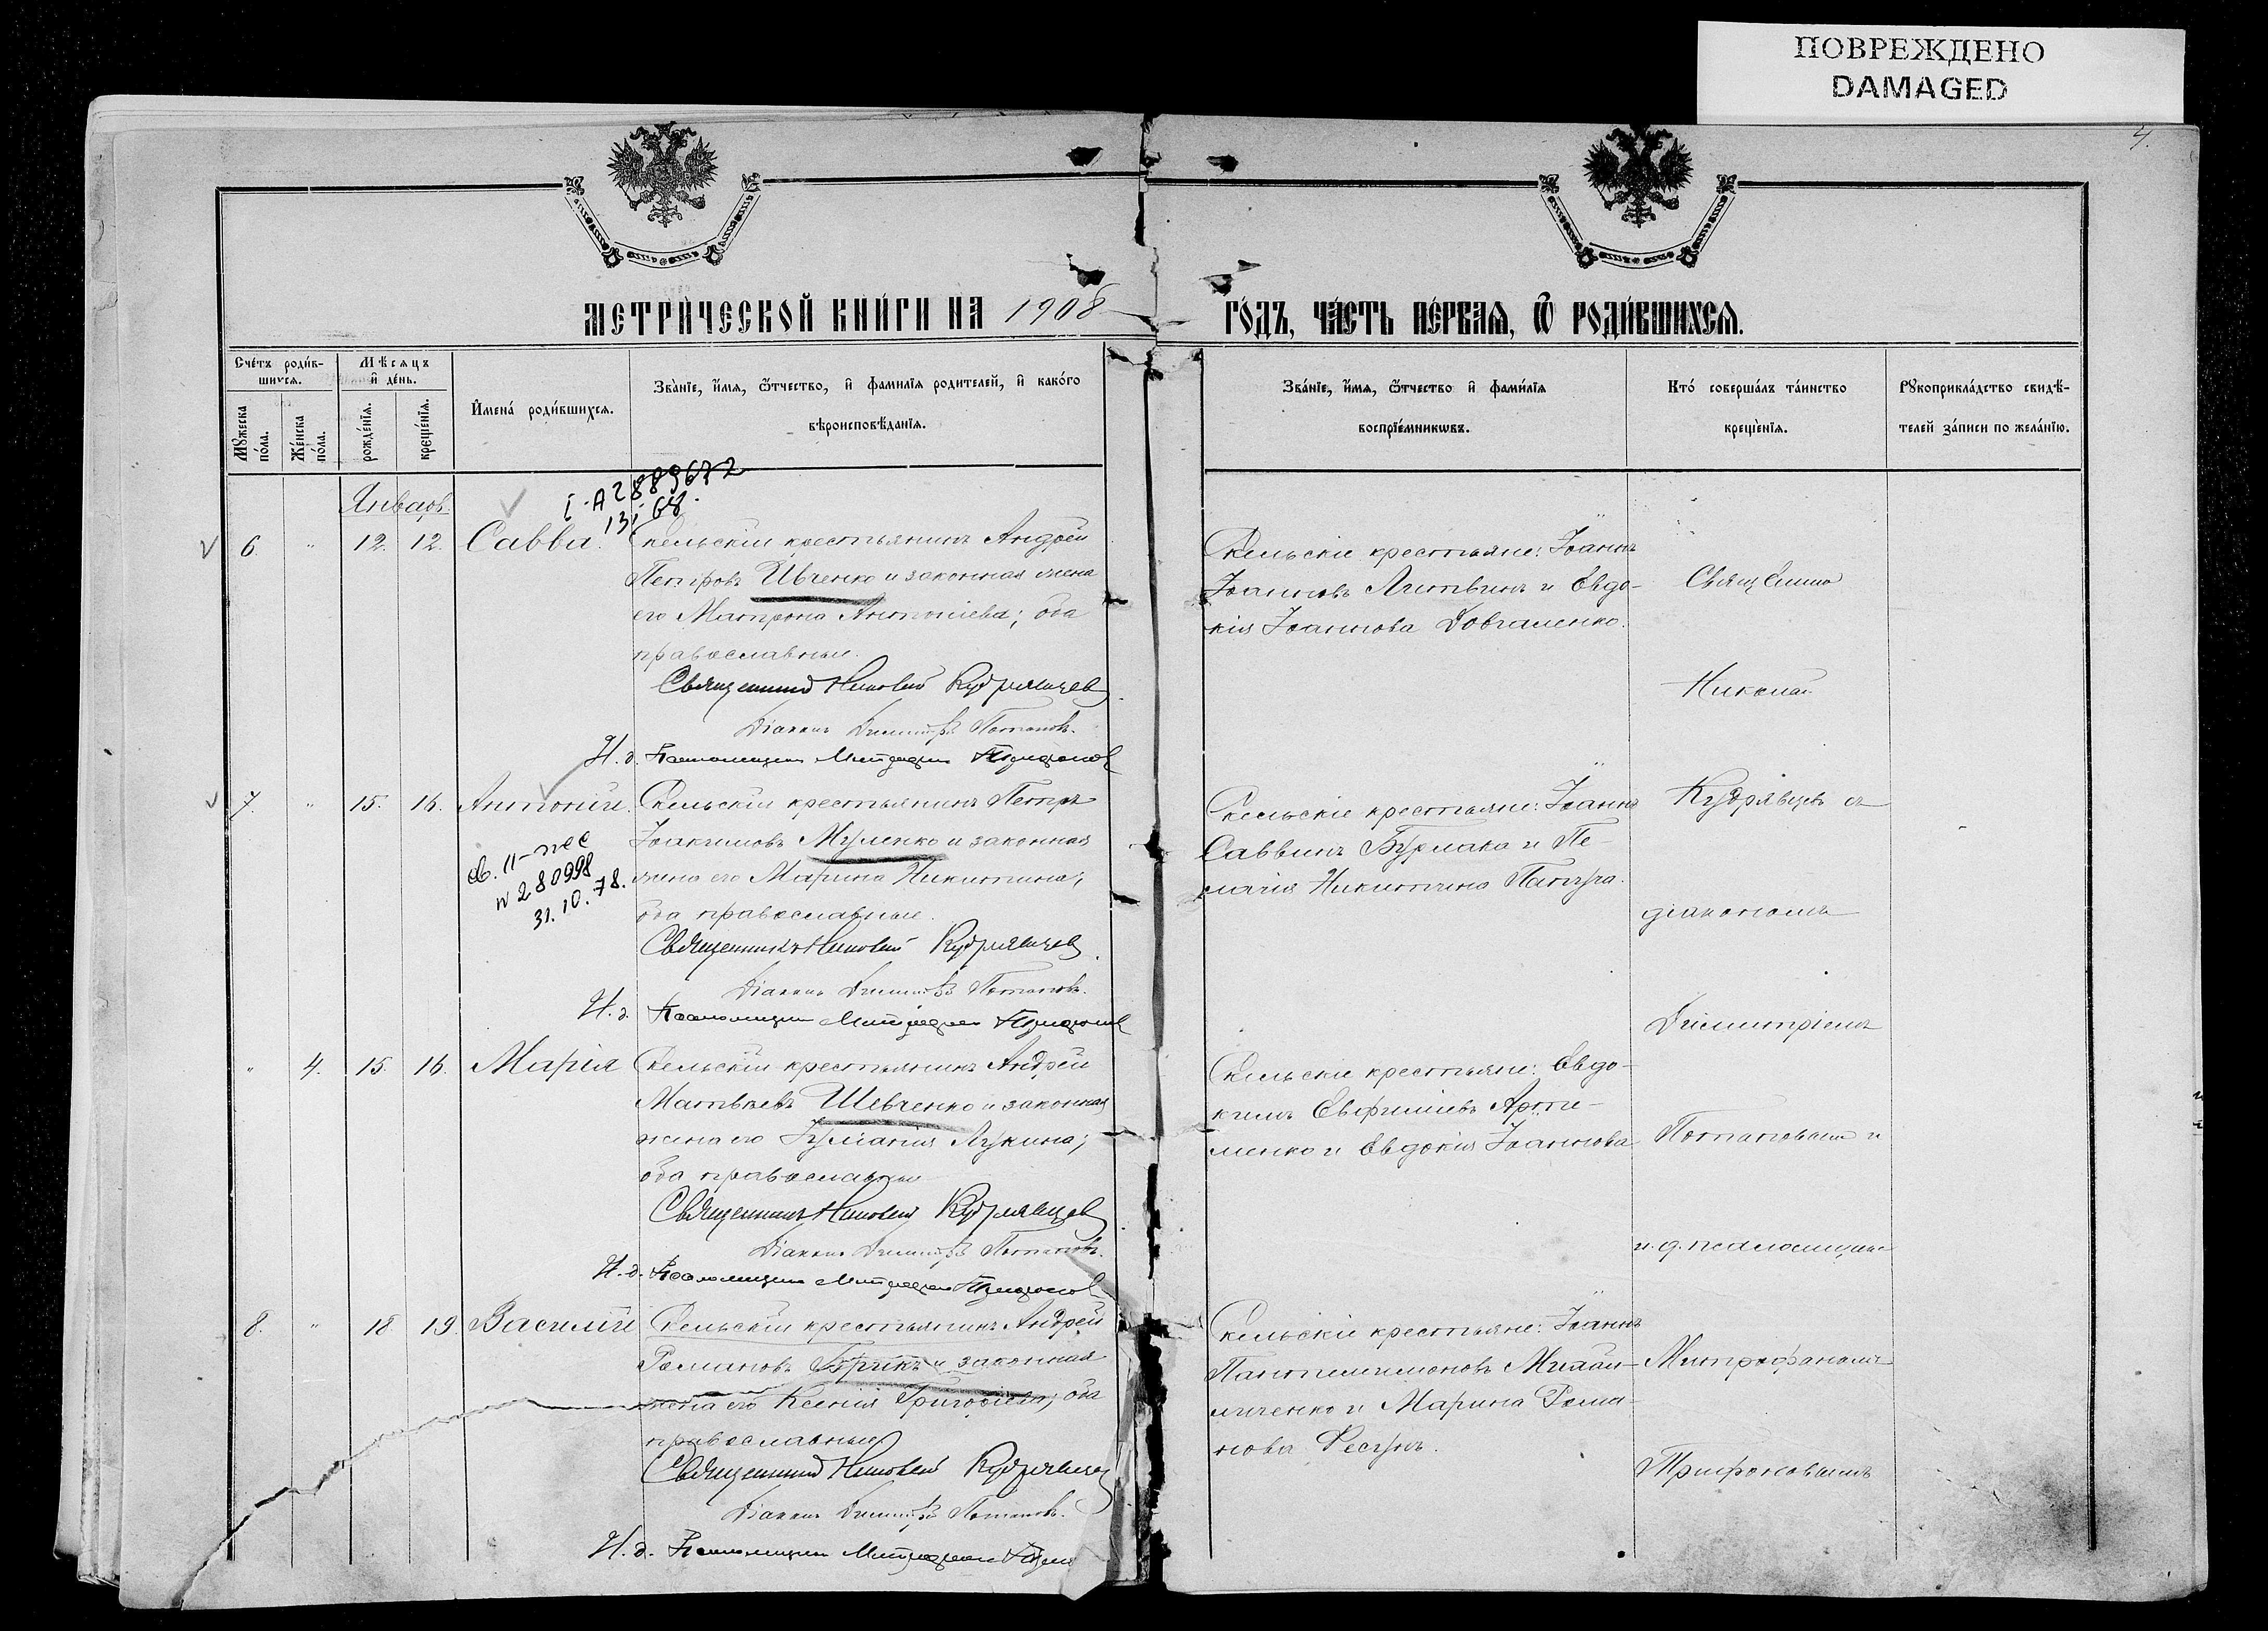 ПОВРЕЖДЕНО
DAMAGED
4.
МЕТРИ́ЧЕСКОЙ КНИ́ГИ НА 1908
ГО́ДЪ, ЧА́СТЬ ПЕ́РВАЯ, Ѿ РОДИ́ВШИХСЯ.
Сче́тъ роди́в-
шихся.
Мꙋжеска по́ла.
Же́нска по́ла.
Мѣсяцъ и де́нь.
рожде́нїя.
креще́нїя.
Имена́ роди́вшихся.
Зва́нїе, и́мя, ѿтчество, и фамилїя родителей, и како́го
вѣроисповѣданїя.
Зва́нїе, и́мя, ѿтчество и фами́лїя
воспрїе́мниковъ.
Кто́ соверша́лъ та́инство
креще́нїя.
Рꙋкоприкла́дство свидѣ-
телей за́писи по жела́нїю.
Январь.
I-А 2889672
13 i 68.
6. " 12. 12. Савва. Скельскій крестьянинъ Андрей
Петровъ Ивченко и законная жена
его Матрона Антоніева; оба
православные.
Священникъ Николай Кудрявцев
Діаконъ Димитрій Потаповъ.
И. д. Псаломщика Митрофанъ
Скельскіе крестьяне: Іоаннъ
Іоанновъ Литвинъ и Евдо-
кія Іоаннова Довгаленко.
7. " 15. 16. Антоній. Скельскій крестьянинъ Петръ
Іоакимовъ Муленко и законная
жена его Марина Никитина;
оба православные.
св. II-
№ 280998
31.10.78.
Священникъ Николай Кудрявцев
Діаконъ Димитрій Потаповъ.
И. д. Псаломщика Митрофанъ
Скельскіе крестьяне: Іоаннъ
Саввинъ Бурлака и Пе-
лагія Никитина
" 4. 15. 16. Марія Скельскій крестьянинъ Андрей
Матвѣевъ Шевченко и законная
жена его Іуліанія Лукина;
оба православные
Священникъ Николай Кудрявцев
Діаконъ Димитрій Потаповъ.
И. д. Псаломщика Митрофанъ
Скельскіе крестьяне: Евдо-
кимъ Евфиміевъ Арте-
менко и Евдокія Іоаннова
8. " 18 19. Василій Скельскій крестьянинъ Андрей
Романовъ и законная
жена его Ксенія Григоріева; оба
православные
Священникъ Николай Кудрявцев
Діаконъ Димитрій Потаповъ.
И. д. Псаломщика Митрофанъ
Скельскіе крестьяне: Іоаннъ
Пантелеимоновъ Михай-
личенко и Марина Рома-
нова
Священникъ
Николай
Кудрявцевъ съ
діакономъ
Димитріемъ
Потаповымъ и
и. д. псаломщика
Митрофаномъ
Трифоновымъ